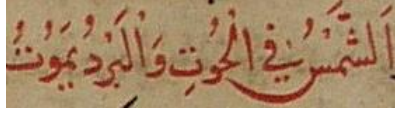 اَلشَّمْسُ فِي الْحُوتِ وَالْبَرْدُ يَمُوتُ